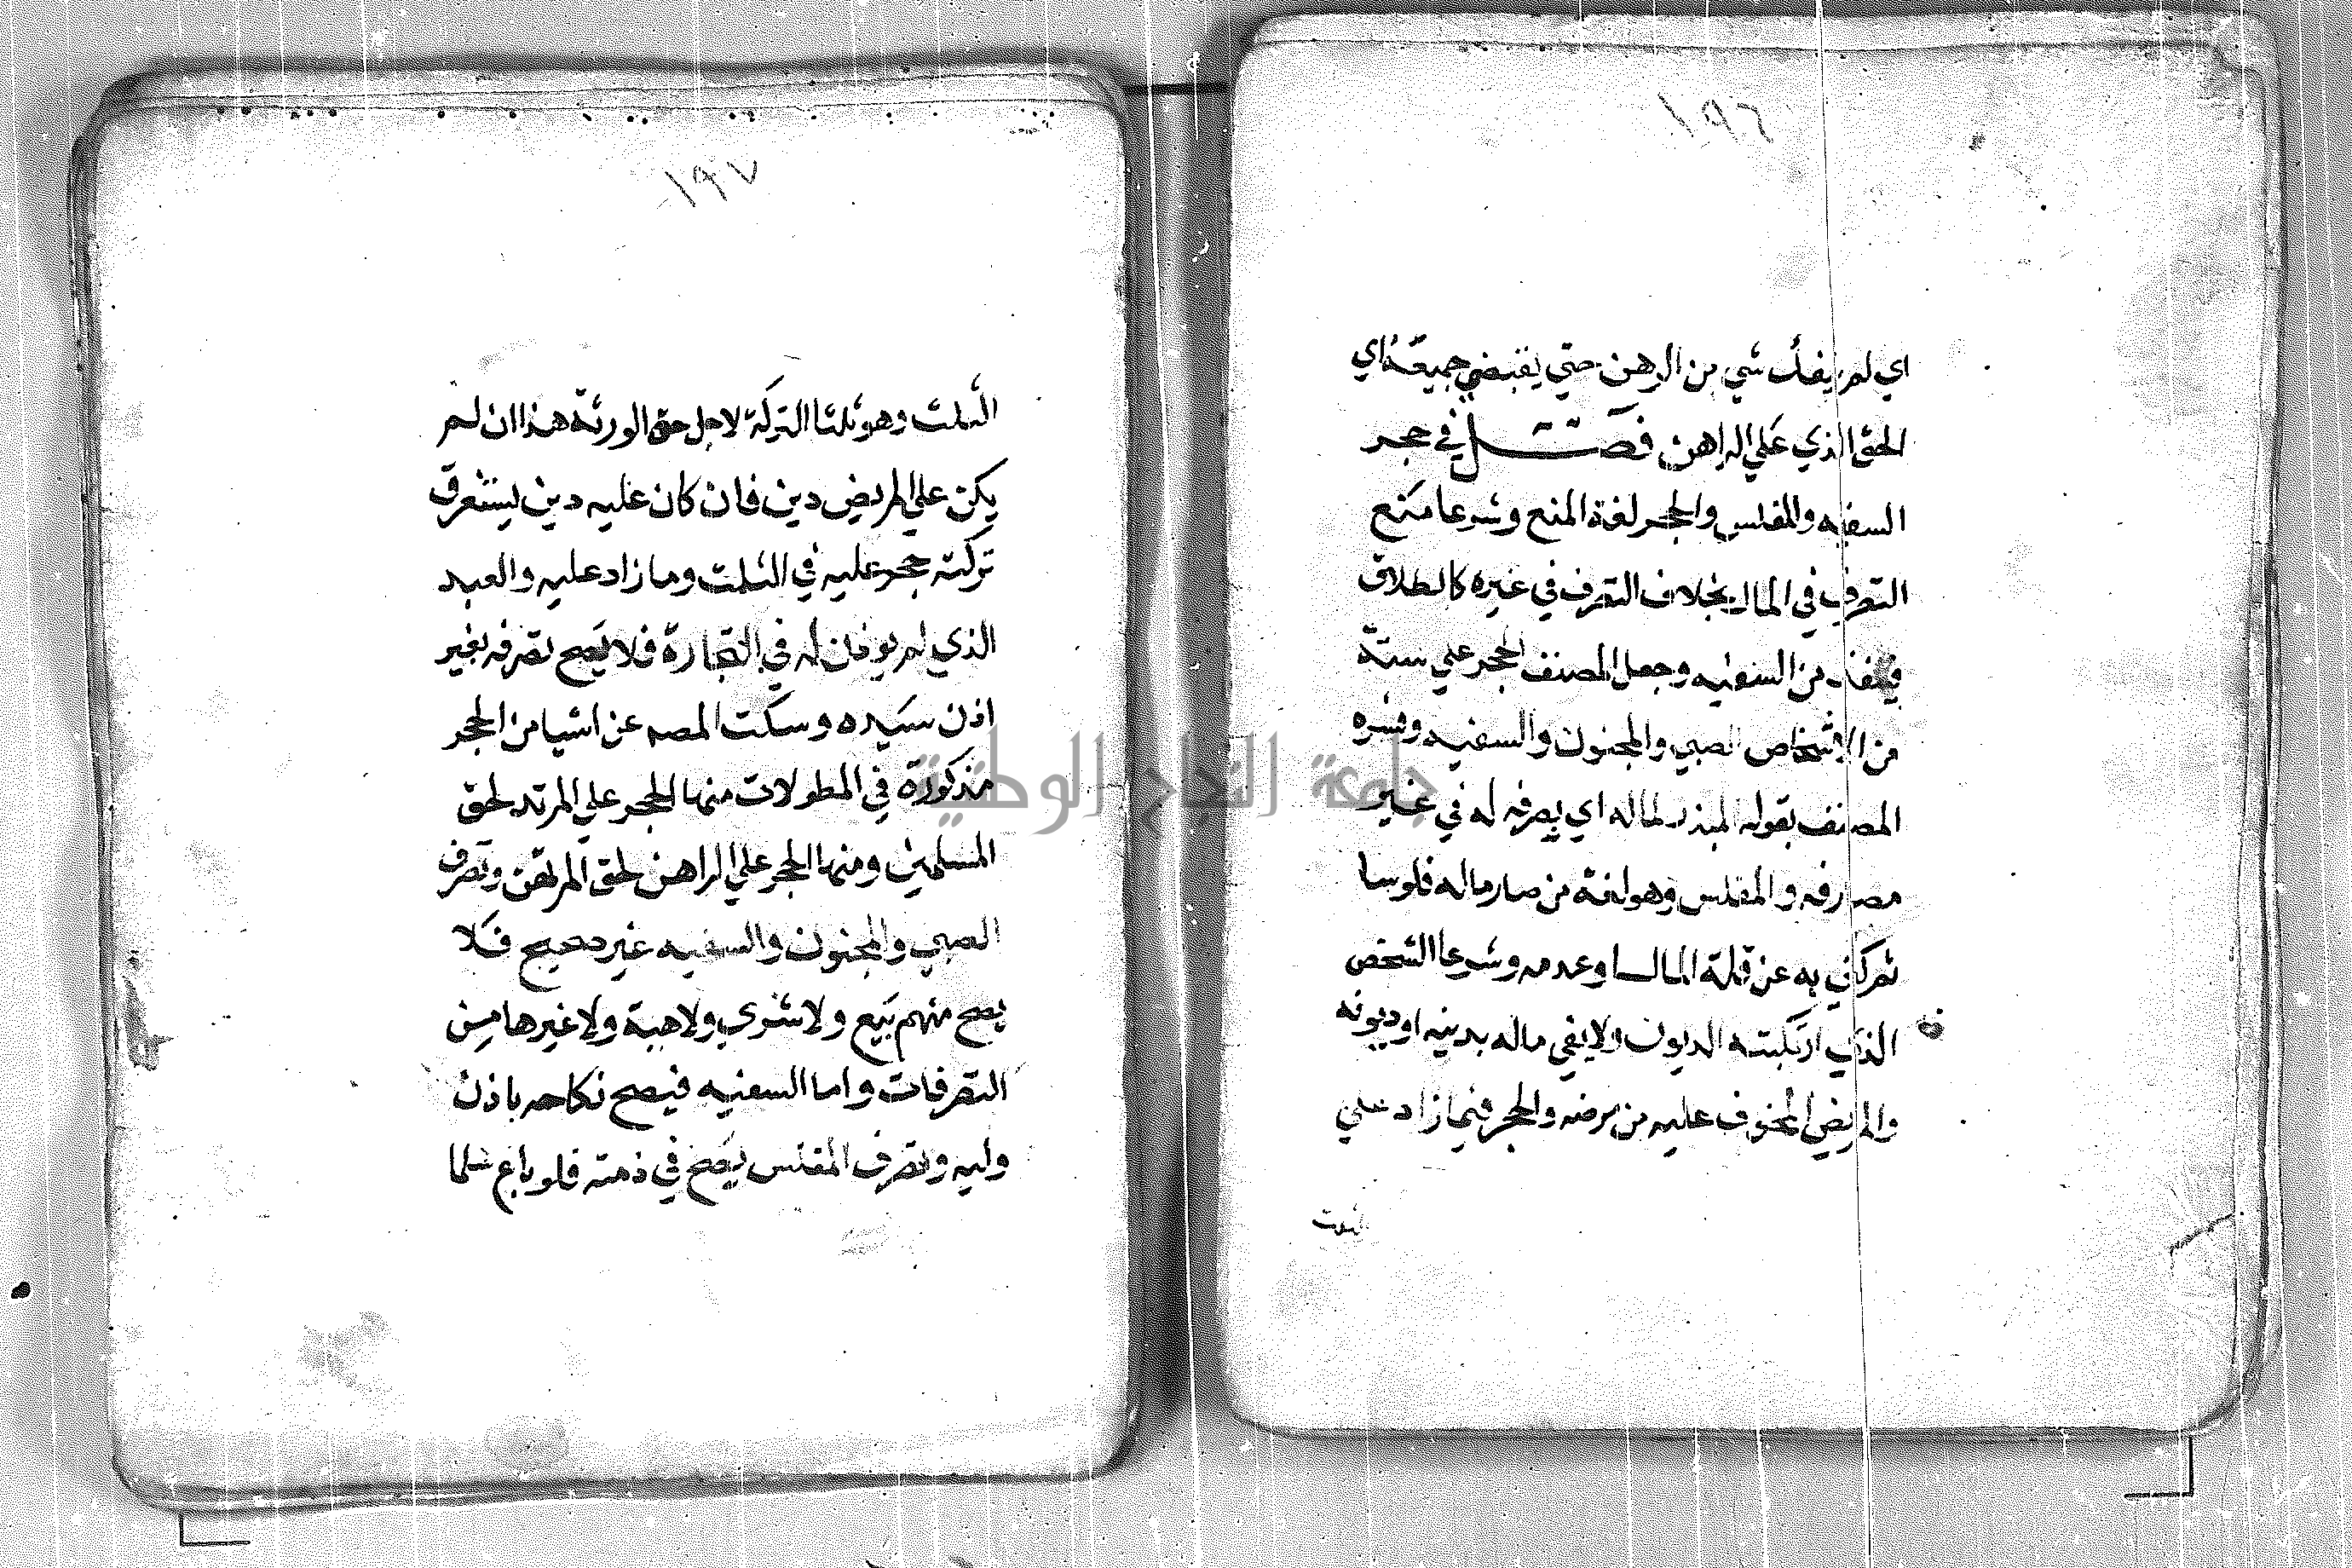 ١٩٦
اي لم يفك شي من الرهن حتي يقبضي جميعه اي
الحق الذي علي الراهن فصل في حجر
السفيه والمفلس والحجر لغة المنع وشرعا منع
التصرف في المال بخلاف التصرف في غيره كالطلاق
فينفذ من السفيه وجعل المصنف الحجر علي ستة
من الاشخاص الصبي والمجنون والسفيه وفسره
المصنف بقوله المبذر لماله اي يصرفه له في غير
مصارفه والمفلس وهو لغة من صار ماله فلوسا
ثم كني به عن قلة المال وعدمه وشرعا الشخص
الذي ارتكبته الديون ولا يفي ماله بدينه او ديونه
والمريض المخوف عليه من مرضه والحجر فيما زاد علي
الثلث
١٩٧
الثلث وهو ثلثا التركة لاجل حق الورثة هذا ان لم
يكن علي المريض دين فان كان عليه دين يستغرق
تركته حجر عليه في الثلث وما زاد عليه والعبد
الذي لم يوذن له في التجارة فلا يصح تصرفه بغير
اذن سيده وسكت المصه عن اشيا من الحجر
مذكورة في المطولات منها الحجر علي المرتد لحق
المسلمين ومنها الحجر علي الراهن لحق المرتهن وتصرف
الصبي والمجنون والسفيه غير صحيح فلا
يصح منهم بيع ولا شري ولا هبة ولا غيرها من
التصرفات واما السفيه فيصح نكاحه باذن
وليه وتصرف المفلس يصح في ذمته فلو باع سلما
جامعة النجاح الوطنية